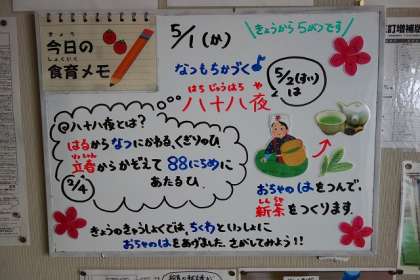 きょう
今日の
しょくいく
食育メモ
5/1(か)
きょうから5がつです
なつもちかづく♪
はちじゅうはち や
八十八夜
5/2(すい)
は
@八十八夜とは?
はるからなつにかわる、くぎりのひ
りっしゅん
立春からかぞえて88にちめに
2/4
あたるひ。
おちゃのはをつんで、
しんちゃ
新茶をつくります。
きょうのきゅうしょくでは、ちくわといっしょに
おちゃのはをあげました。さがしてみよう!!